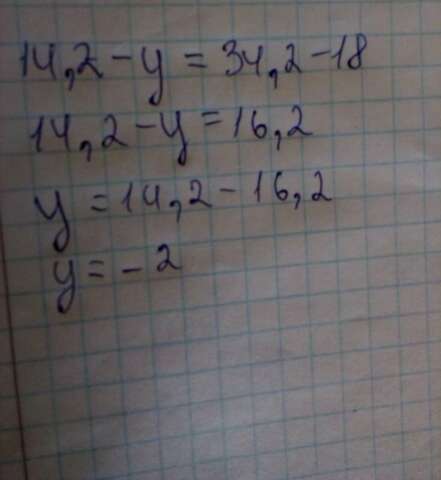 14,2 - y = 34,2 - 18
14,2 - y = 16,2
y = 14,2 - 16,2
y = - 2